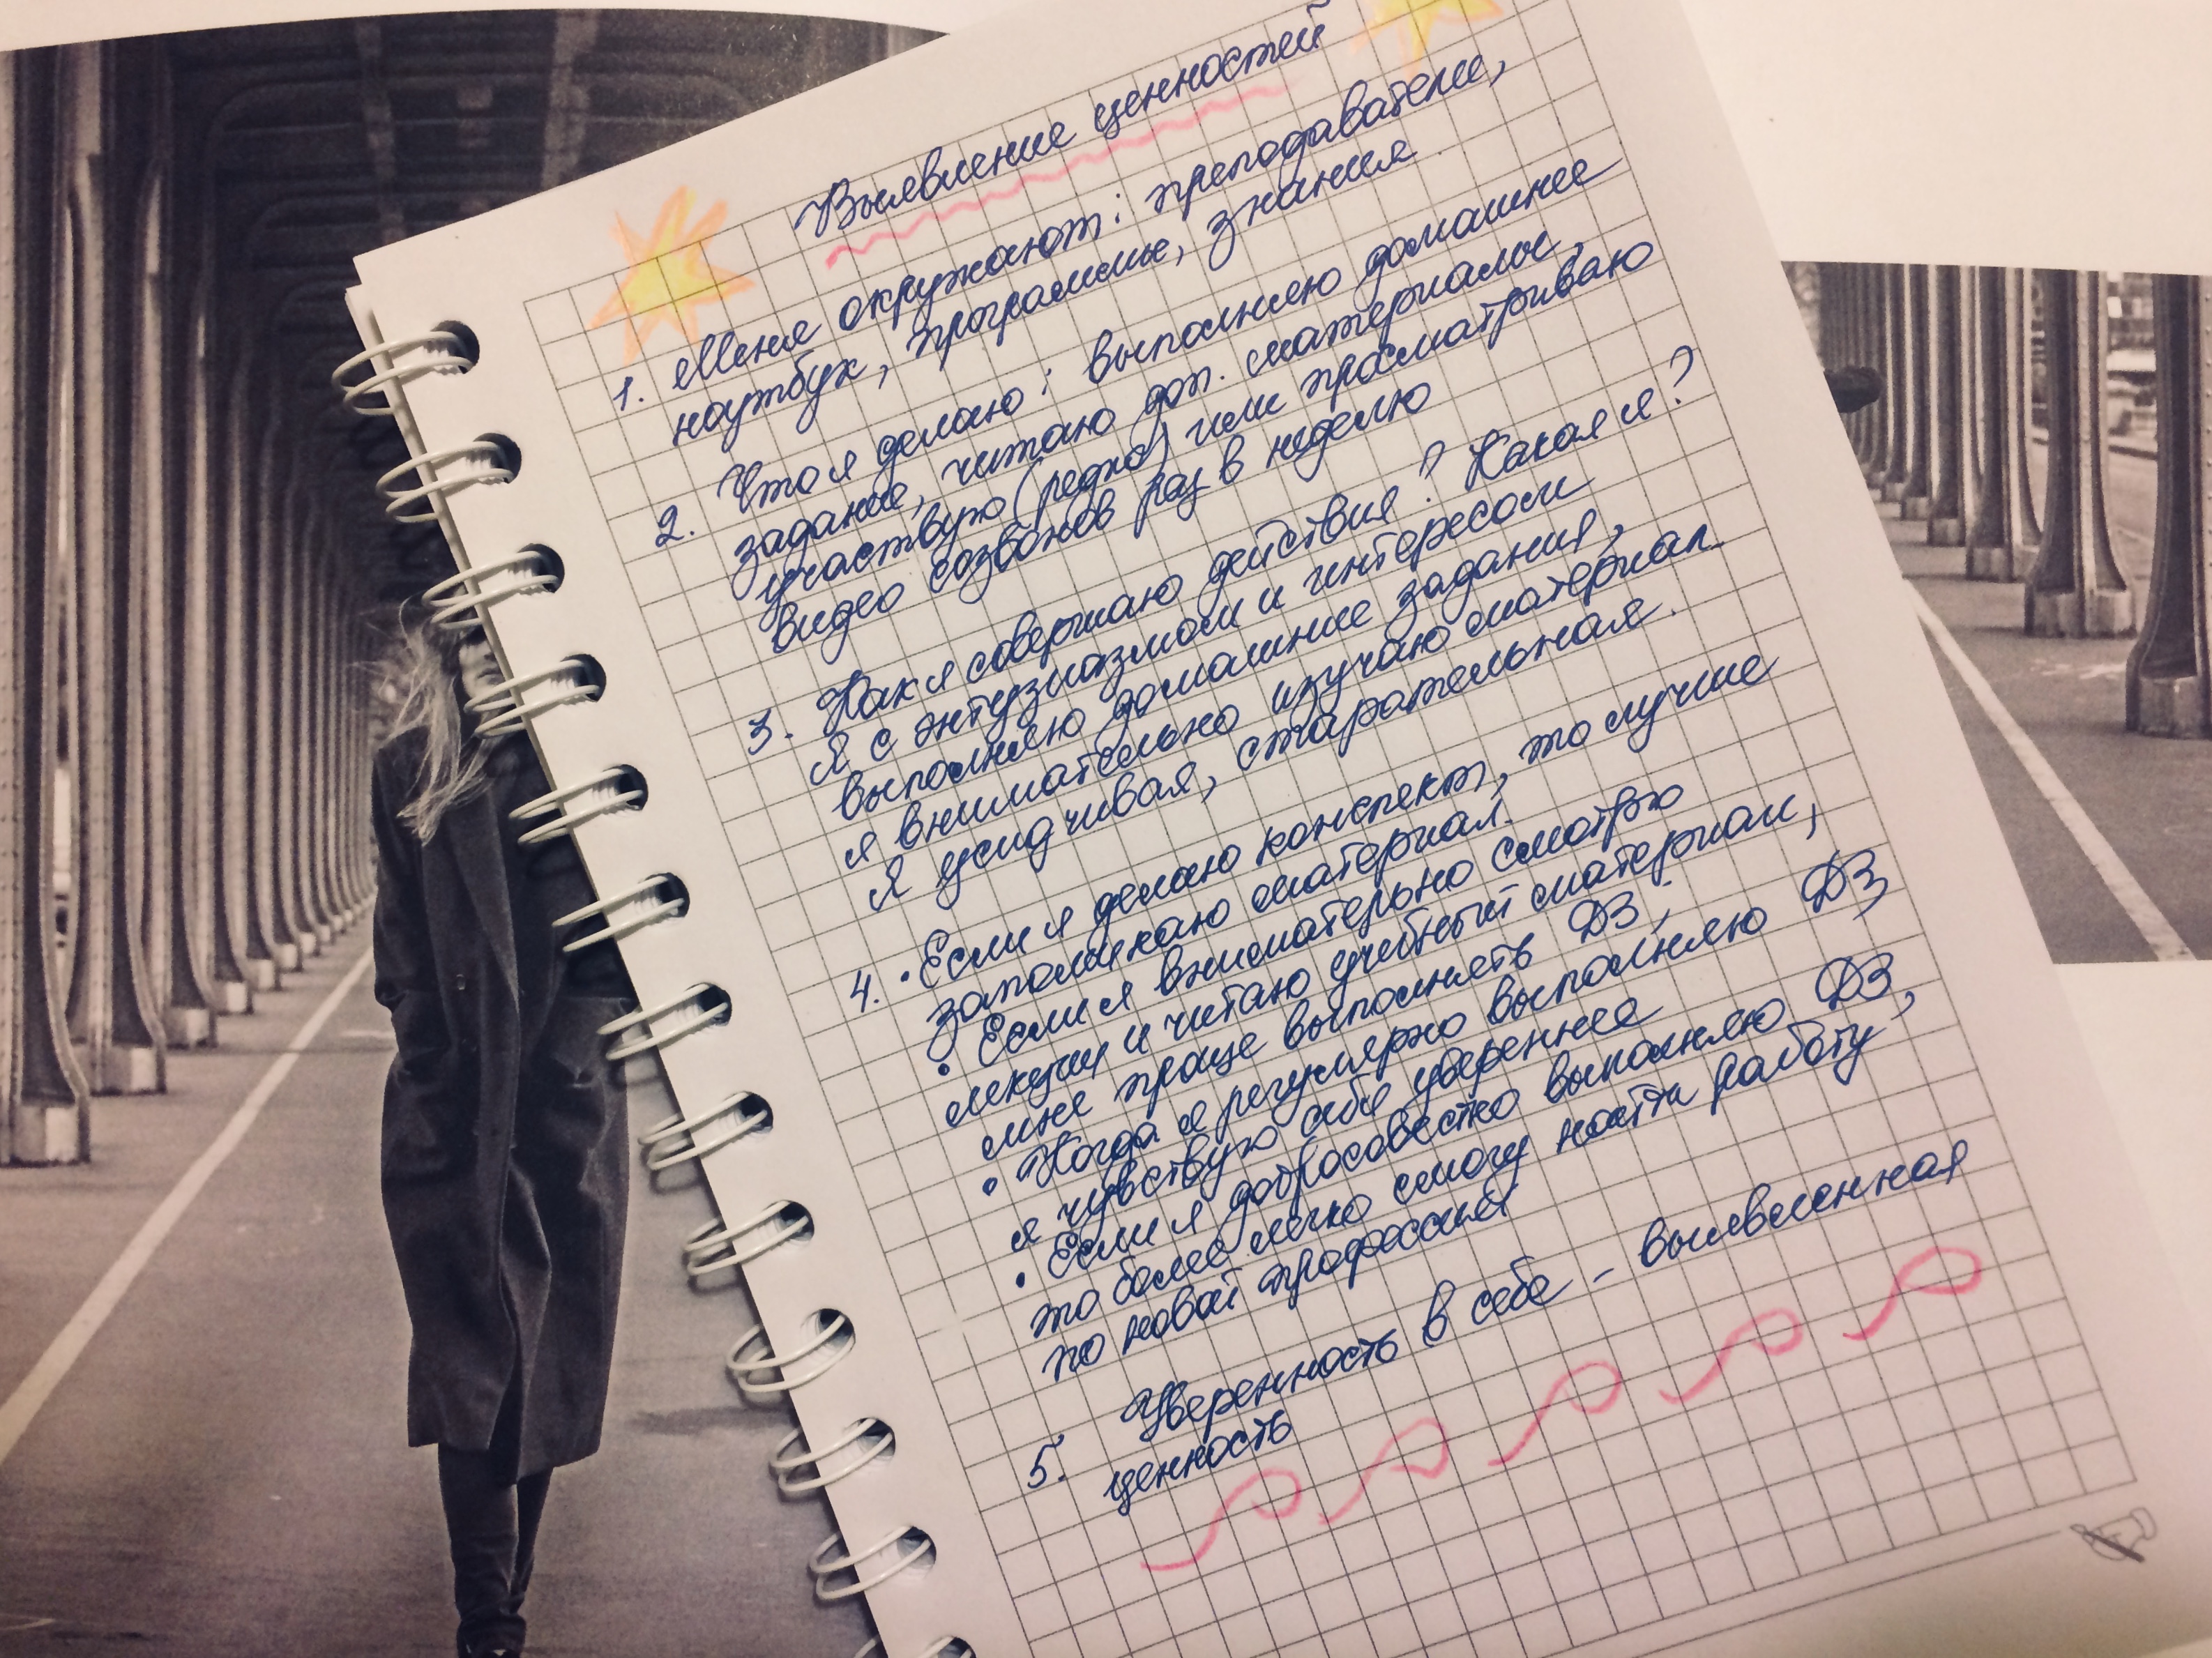 Выявление ценностей
1. Меня окружают: преподаватели,
ноутбук, программы, знания
2. Что я делаю: выполняю домашнее
задание, читаю доп. материалы,
участвую (редко) или просматриваю
видео созвонов раз в неделю
3. Как я совершаю действия? Какая я?
Я с энтузиазмом и интересом
выполняю домашние задания,
я внимательно изучаю материал.
Я усидчивая, старательная.
4. • Если я делаю конспект, то лучше
запоминаю материал.
• Если я внимательно смотрю
лекции и читаю учебный материал,
мне проще выполнять ДЗ;
• Когда я регулярно выполняю ДЗ,
я чувствую себя увереннее
• Если я добросовестно выполняю ДЗ,
то более легко смогу найти работу
по новой профессии
5. Уверенность в себе - выявленная
ценность